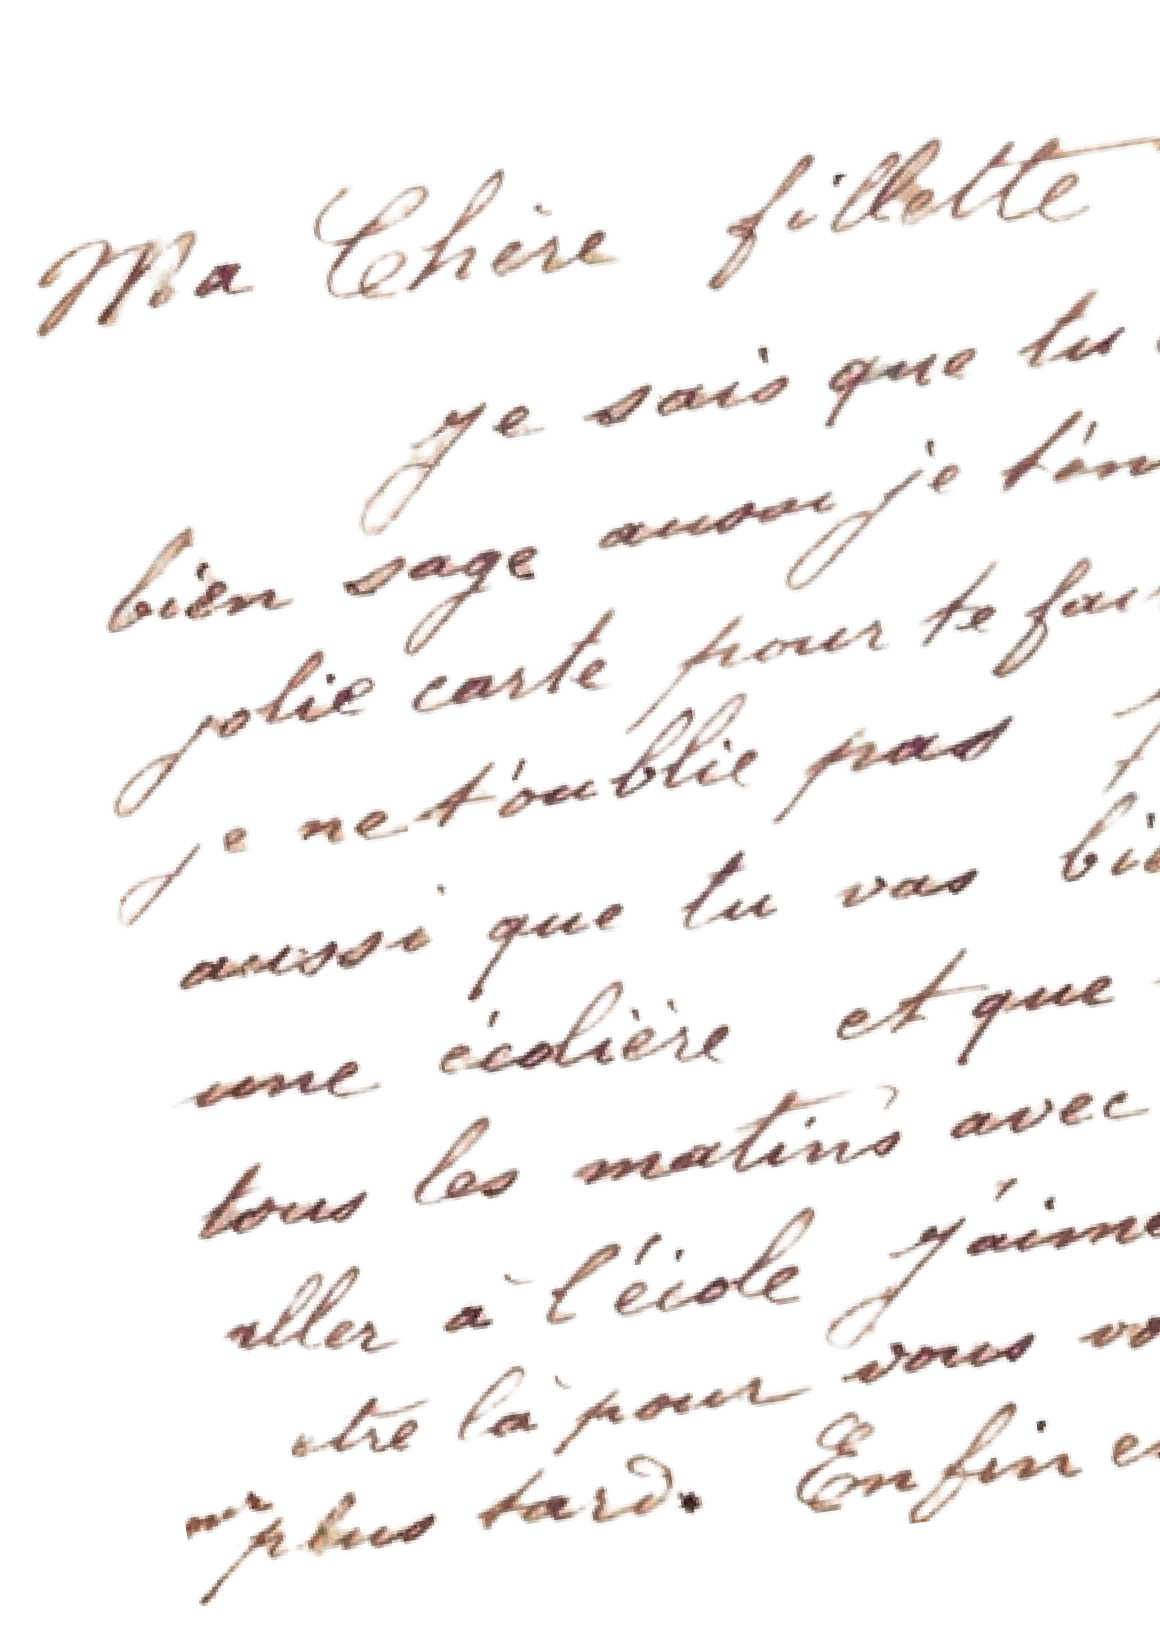 Ma Chère fillette
Je sais que tu
bien sage aussi je t'en
jolie carte pour te fai
je ne t'oublie pas
aussi que tu vas bie
une écolière et que
tous les matins avec
aller à l'école J'aime
être là pour vous vo
plus tard. Enfin e